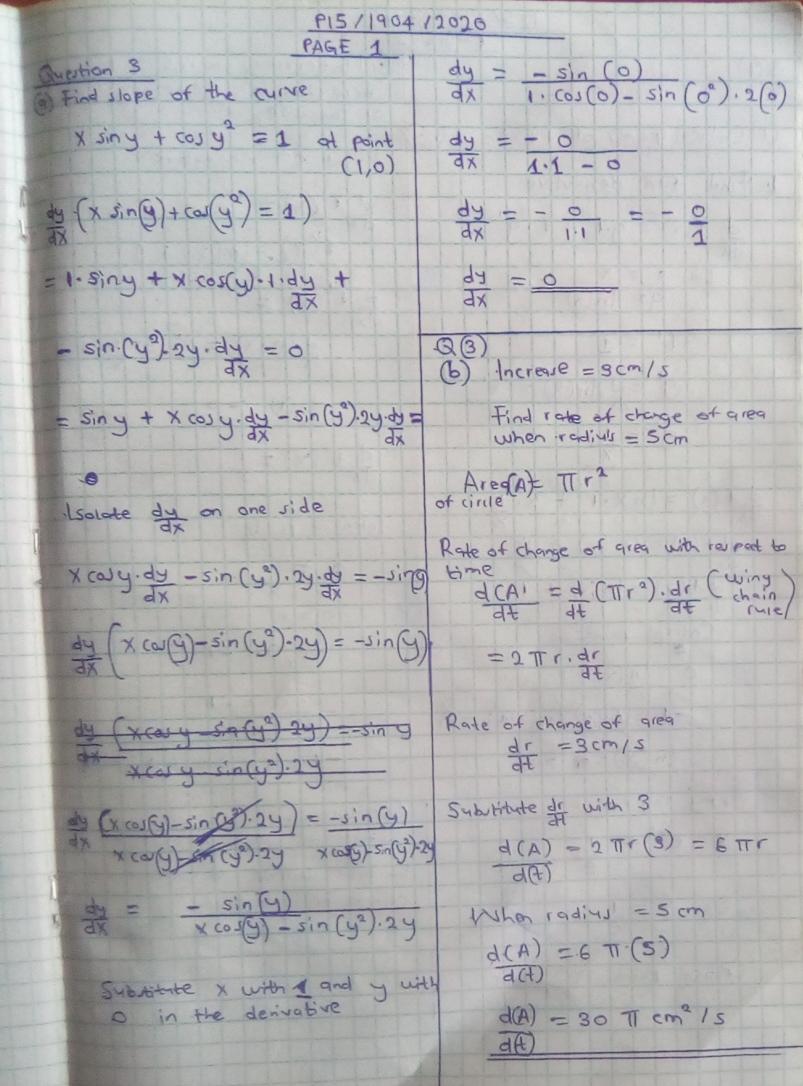 P15/1904/2020
PAGE 1
Question 3
(a) Find slope of the curve
x sin y + cos y² = 1 at point
(1,0)
dy/dx (x sin(y) + cos(y²) = 1)
= 1· sin y + x cos(y)·1· dy/dx +
- sin·(y²)·2y· dy/dx = 0
= sin y + x cos y· dy/dx - sin(y²)·2y· dy/dx =
0
Isolate dy/dx on one side
x cos y· dy/dx - sin(y²)·2y· dy/dx = -sin y
dy/dx (x cos(y) - sin(y²)·2y) = -sin(y)
dy/dx (x cos y - sin(y²)·2y) = -sin y
x cos y - sin(y²)·2y
dy/dx (x cos(y) - sin(y²)·2y) / x cos(y) - sin(y²)·2y = -sin(y) / x cos(y) - sin(y²)·2y
dy/dx = - sin(y) / x cos(y) - sin(y²)·2y
Substitute x with 1 and y with
0 in the derivative
dy/dx = - sin(0) / 1· cos(0) - sin(0²)·2(0)
dy/dx = - 0 / 1·1 - 0
dy/dx = - 0/1·1 = - 0/1
dy/dx = 0
Q(3)
(b) Increase = 3cm/s
Find rate of change of area
when radius = 5cm
Area(A) = πr²
of circle
Rate of change of area with respect to
time
d(A)/dt = d/dt (πr²)· dr/dt (using chain rule)
= 2πr· dr/dt
Rate of change of area
dr/dt = 3cm/s
Substitute dr/dt with 3
d(A)/d(t) = 2πr(3) = 6πr
When radius = 5 cm
d(A)/d(t) = 6π·(5)
d(A)/d(t) = 30π cm²/s